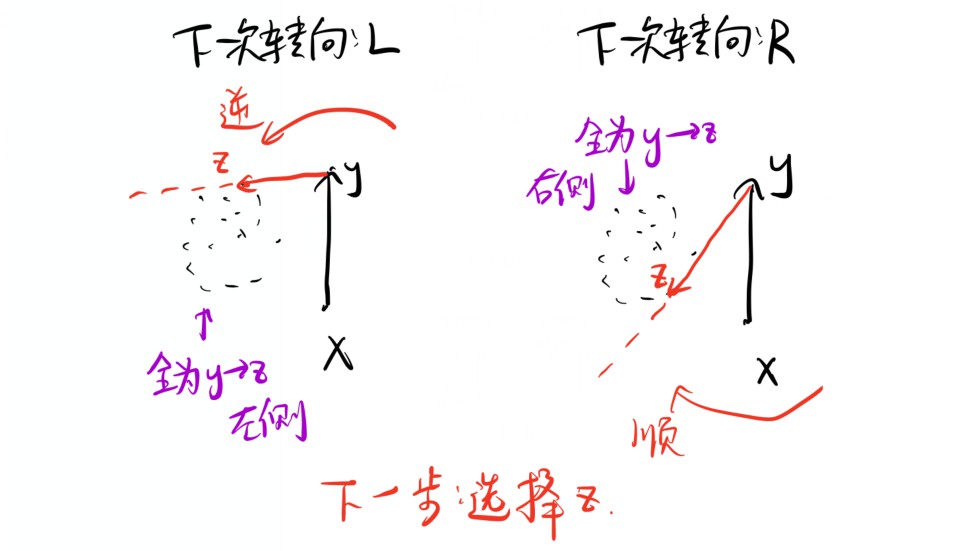 下一次转向:L
逆
z
y
全为y→z
左侧
x
下一次转向:R
全为y→z
右侧
y
z
x
顺
下一步:选择z.